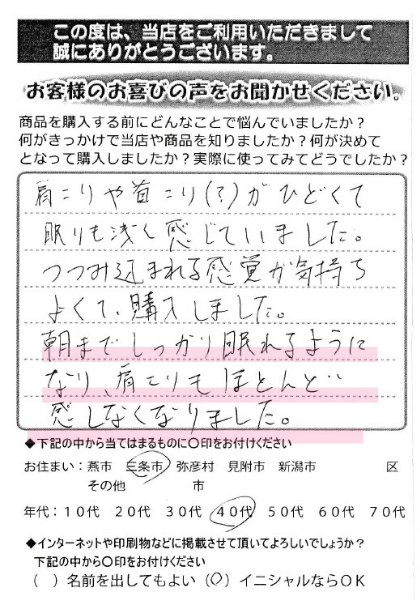 この度は、当店をご利用いただきまして
誠にありがとうございます。
お客様のお喜びの声をお聞かせください。
商品を購入する前にどんなことで悩んでいましたか？
何がきっかけで当店や商品を知りましたか？何が決めて
となって購入しましたか？実際に使ってみてどうでしたか？
肩こりや首こり(？)がひどくて
眠りも浅く感じていました。
つつみ込まれる感覚が気持ち
よくて、購入しました。
朝までしっかり眠れるように
なり、肩こりもほとんど
感じなくなりました。
◆下記の中から当てはまるものに〇印をお付けください
お住まい：燕市 三条市 弥彦村 見附市 新潟市 区
その他 市
年代：10代 20代 30代 40代 50代 60代 70代
◆インターネットや印刷物などに掲載させて頂いてよろしいでしょうか？
下記の中から〇印をお付けください
（ ）名前を出してもよい（〇）イニシャルならOK